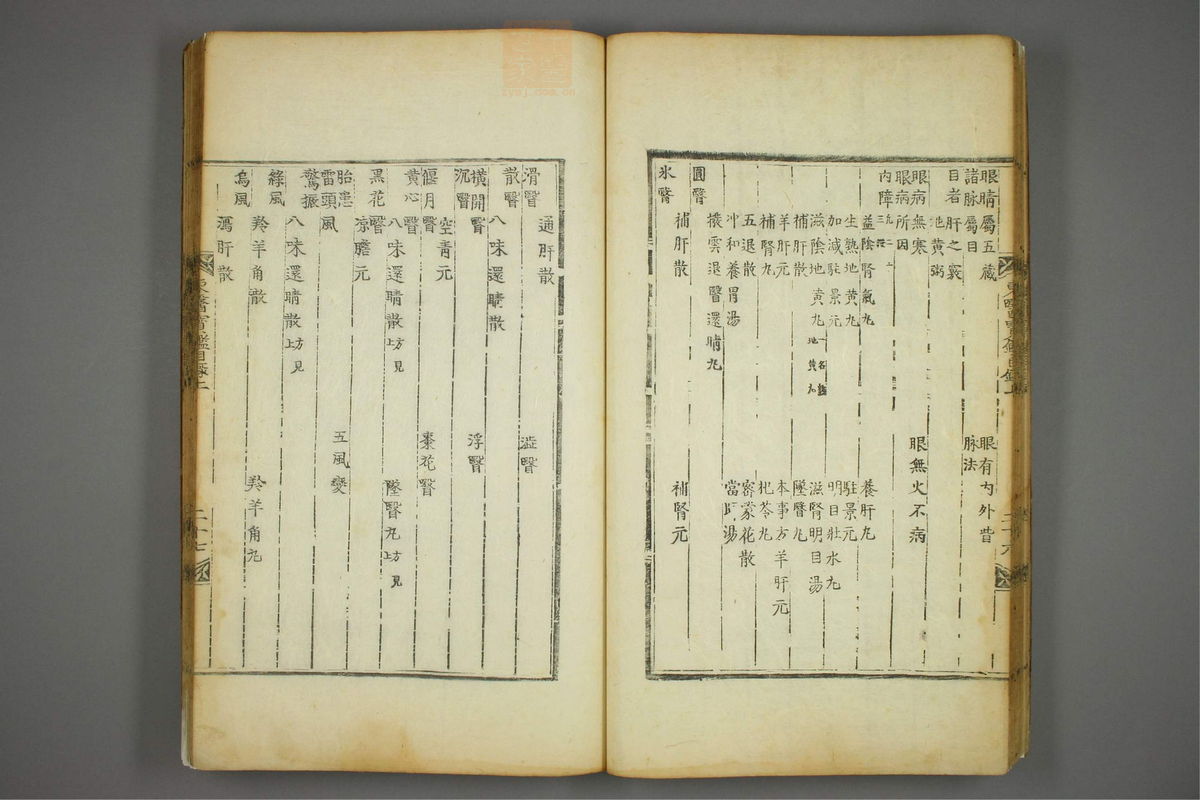 眼睛屬五藏
眼有內外眥
諸脉屬目
脉法
目者肝之竅
地黃粥
眼病無寒
眼無火不病
眼病所因
內障
益陰腎氣丸
養肝丸
生熟地黃丸
駐景元
加減駐景元
明目壯水丸
滋陰地黃丸
滋腎明目湯
補肝散
墜瞖丸
羊肝元
本事方羊肝元
補腎丸
杞苓丸
五退散
密蒙花散
冲和養胃湯
當歸湯
撥雲退瞖還睛丸
圓瞖
補肝散
補腎元
氷瞖
東醫寶鑑目錄上
通肝散
滑瞖
澁瞖
散瞖
八味還睛散
橫開瞖
浮瞖
沉瞖
空靑元
偃月瞖
棗花瞖
黃心瞖
八味還睛散 方見上
墜瞖丸 方見上
黑花瞖
凉膽元
胎患
五風變
雷頭風
驚振
八味還睛散 方見上
綠風
羚羊角散
羚羊角丸
烏風
瀉肝散
東醫寶鑑目錄上
二十七